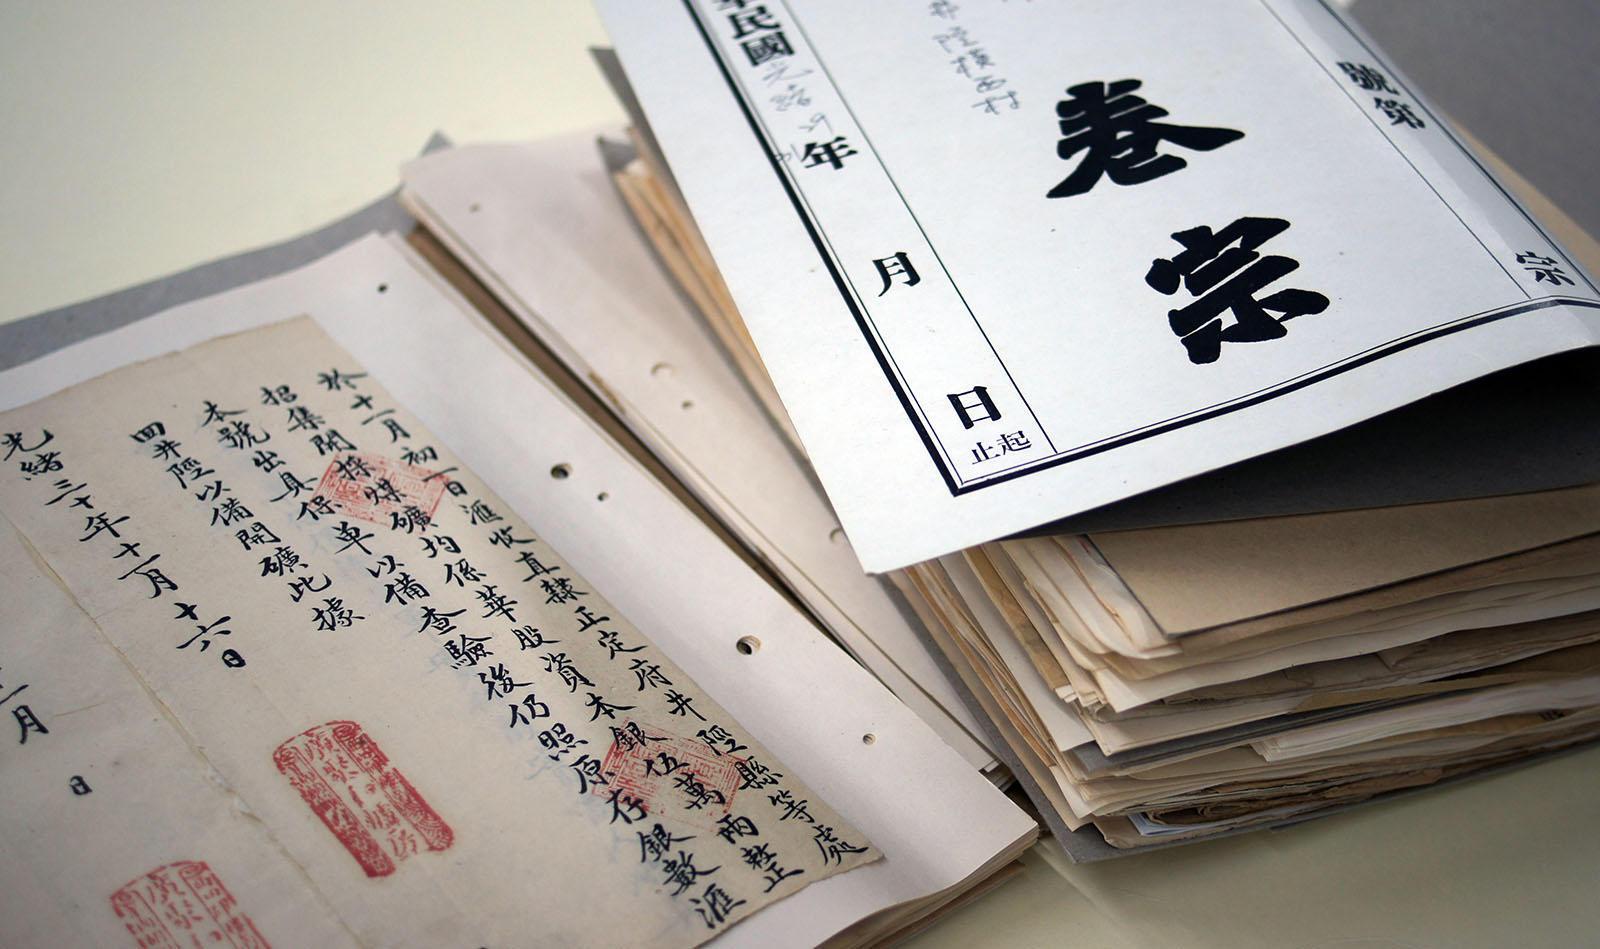 號第
宗
卷宗
井陘橫西村
華民國光緒29年月日
起止
於十一月初一日滙收直隸正定府井陘縣等處
招集開採煤礦均係華股資本銀伍萬兩整
本號出具保单以備查驗後仍照原存銀數滙
回井陘以備開礦此據
光緒三十年十一月十六日
一月
日